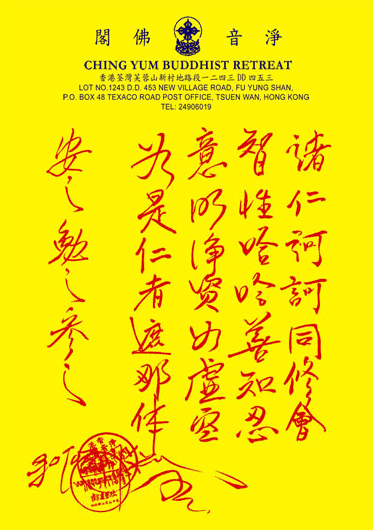 閣佛 音淨
CHING YUM BUDDHIST RETREAT
香港荃灣芙蓉山新村地路段一二四三 DD 四五三
LOT NO.1243 D.D. 453 NEW VILLAGE ROAD, FU YUNG SHAN,
P.O. BOX 48 TEXACO ROAD POST OFFICE, TSUEN WAN, HONG KONG
TEL: 24906019
諸仁訶訶同修會
智性哈哈善知忍
意明淨賢如虛空
為是仁者遮那体
安之勉之參之